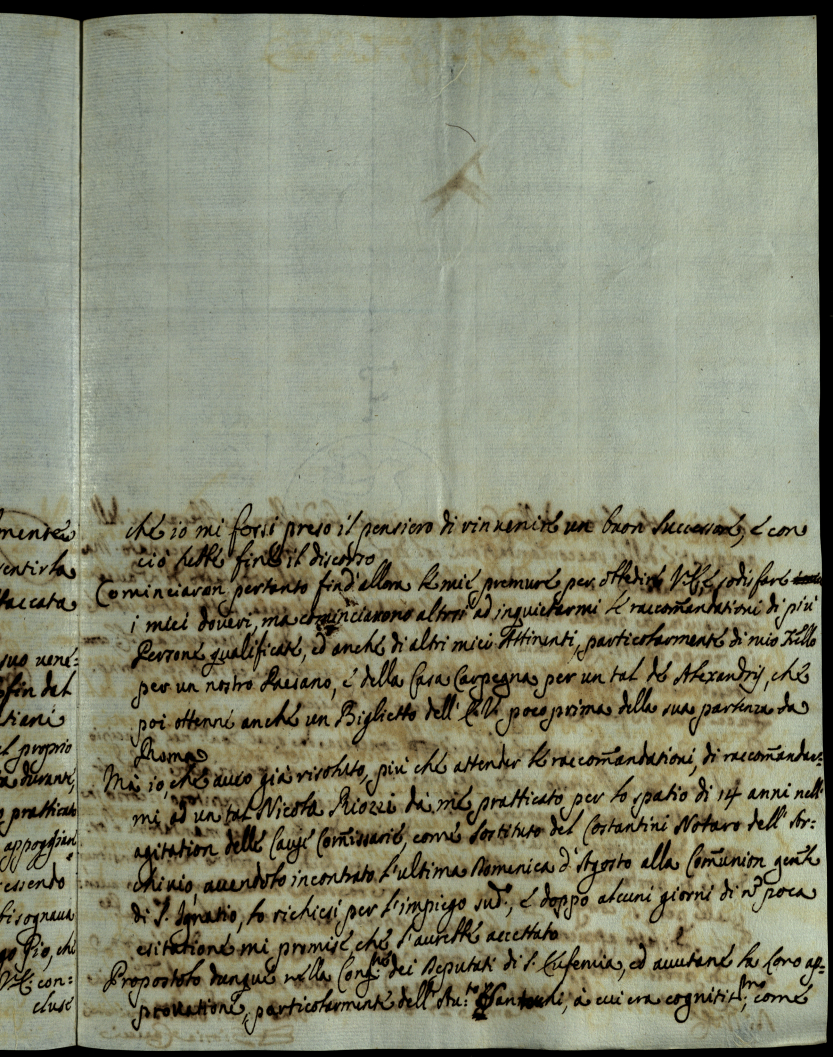 mente
sentirla
staccata
suo vene:
fin dal
stiani
el proprio
durante,
pratticato
appoggian
essendo
bisognava
Pio, che
con:
cluse
che io mi fossi preso il pensiero di rinvenire un buon Successore, e con
ciò hebbe fine il discorso
Cominciaron pertanto fin d'allora le mie premure per obbedire V. E. e sodisfare
i miei doveri, ma cominciarono altresì ad inquietarmi le raccom̃andationi di più
Persone qualificate, ed anche di altri miei Attinenti, particolarmente di mio Fr̃ello
per un nostro Paesano, e della Casa Carpegna per un tal de Alexandris, che
poi ottenne anche un Biglietto dell' E. V. poco prima della sua partenza da
Roma
Mà io, che avevo già risoluto, più che attender le raccom̃andationi, di raccom̃andar:
mi ad un tal Nicola Riozzi da me pratticato per lo spatio di 14 anni nell'
agitation delle Cause Com̃issarie, come Sostituto del Costantini Notaro dell' Ar:
chivio, avendolo incontrato l'ultima Domenica d'Agosto alla Com̃union gen̄le
di S. Ignatio, lo richiesi per l'impiego sud.º, e doppo alcuni giorni di nõ poca
esitatione mi promise, che l'avrebbe accettato
Propostolo dunque nella Cong.ne dei Deputati di S. Eufemia, ed avutane la loro ap:
provatione, particolarmente dell' Av.to Santucci, à cui era cognitis.mo, come